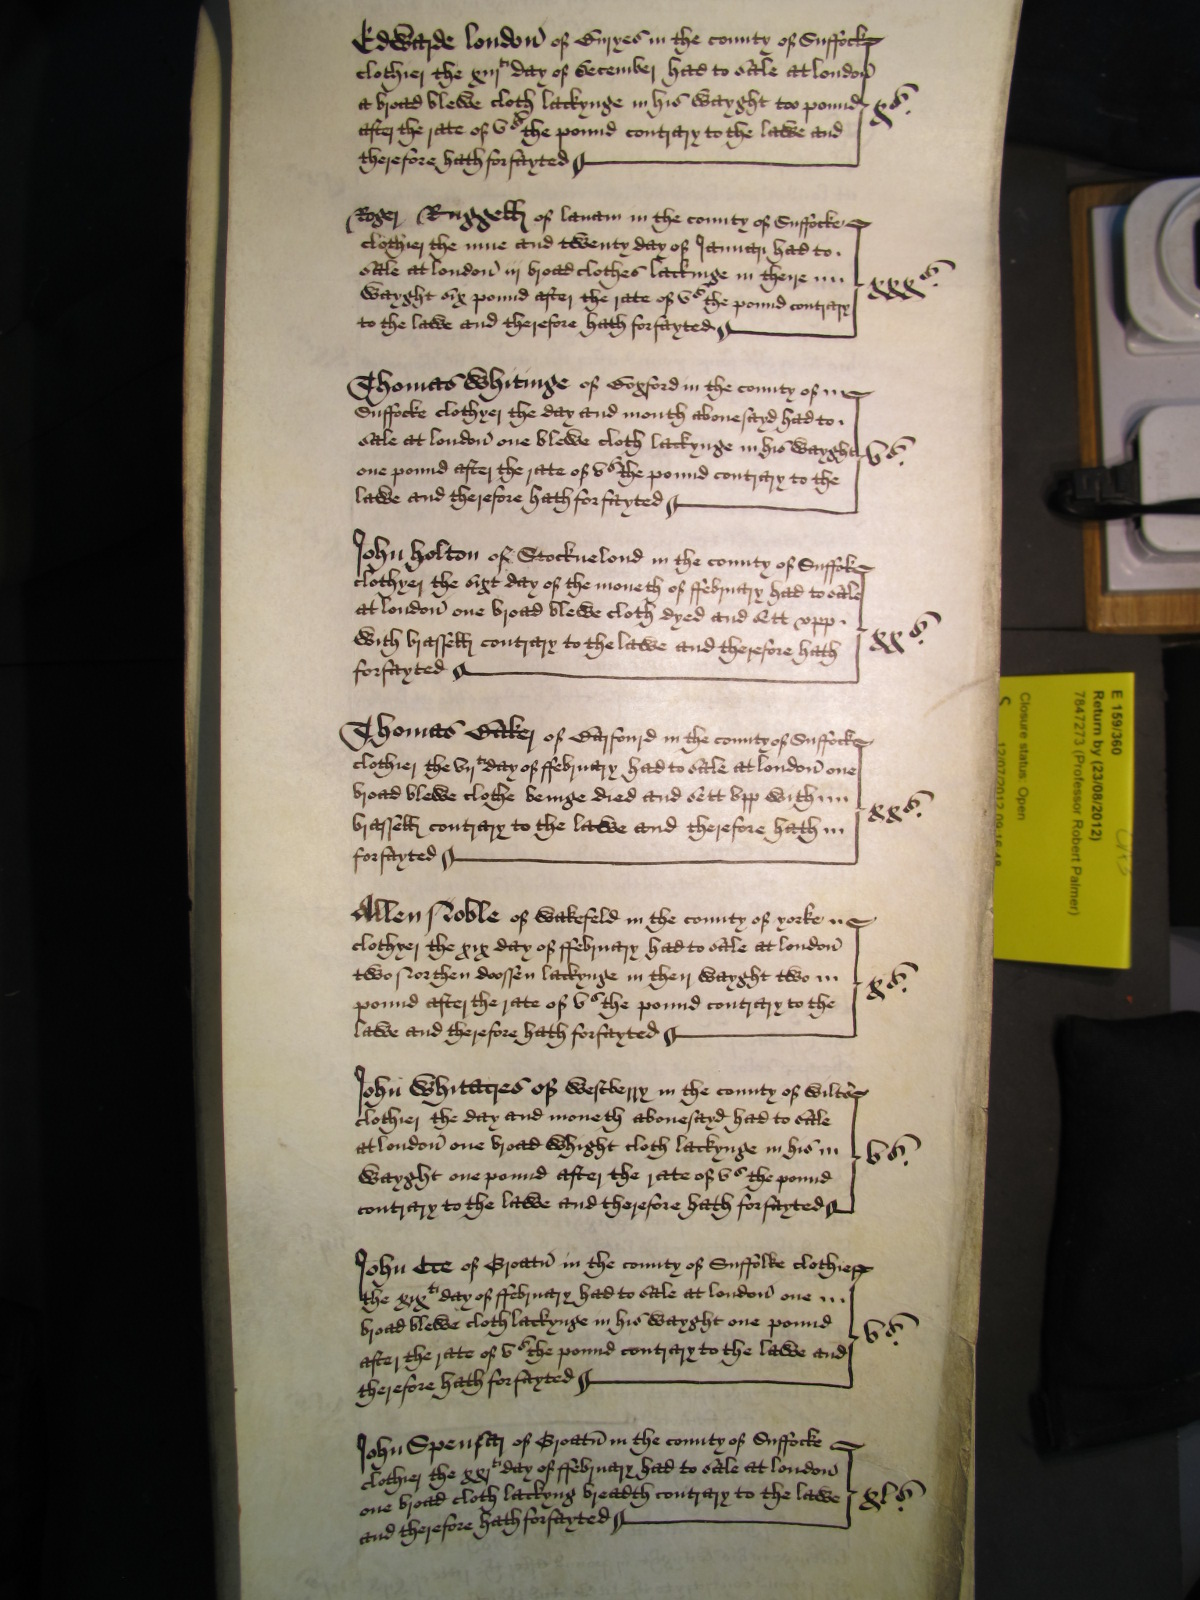 Edwarde London of Buryes in the county of Suffocke
clothier the xiiith day of December had to sale at London
a broad blewe cloth lackynge in his wayght too pound
after the rate of vs the pound contrary to the lawe and
therefore hath forfayted
xs.
Roger Ruggell of Lanam in the county of Suffocke
clothier the nine and twenty day of January had to
sale at London iij broad clothes lackinge in there
wayght six pound after the rate of vs the pound contrary
to the lawe and therefore hath forfayted
xxxs.
Thomas Whitinge of Boxford in the county of
Suffocke clothyer the day and month abovesayd had to
sale at London one blewe cloth lackynge in his wayght
one pound after the rate of vs the pound contrary to the
lawe and therefore hath forfayted
vs.
John Holton of Stocknelond in the county of Suffoke
clothyer the sixt day of the moneth of ffebruary had to sale
at London one broad blewe cloth dyed and sett vpp
with brassell contrary to the lawe and therefore hath
forfayted
xxs.
Thomas Baker of Barfourd in the county of Suffocke
clothier the vijth day of ffebruary had to sale at London one
broad blewe clothe beinge died and sett vpp with
brassell contrary to the lawe and therefore hath
forfayted
xxs.
Allen Noble of Wakefeld in the county of Yorke
clothyer the xix day of ffebruary had to sale at London
two Northen doossen lackynge in their wayght two
pound after the rate of vs the pound contrary to the
lawe and therefore hath forfayted
xs.
John Whitacres of Westberry in the county of Wiltes
clothier the day and moneth abovesayd had to sale
at London one broad whight cloth lackynge in his
wayght one pound after the rate of vs the pound
contrary to the lawe and therefore hath forfayted
vs.
John Cce of Groatn in the county of Suffolke clothier
the xixth day of ffebruary had to sale at London one
broad blewe cloth lackynge in his wayght one pound
after the rate of vs the pound contrary to the lawe and
therefore hath forfayted
vs.
John Spensar of Groatn in the county of Suffocke
clothier the xxjth day of ffebruary had to sale at London
one broad cloth lackyng breadth contrary to the lawe
and therefore hath forfayted
xls.
E 159/360
Return by (23/08/2012)
7847273 (Professor Robert Palmer)
Closure status: Open